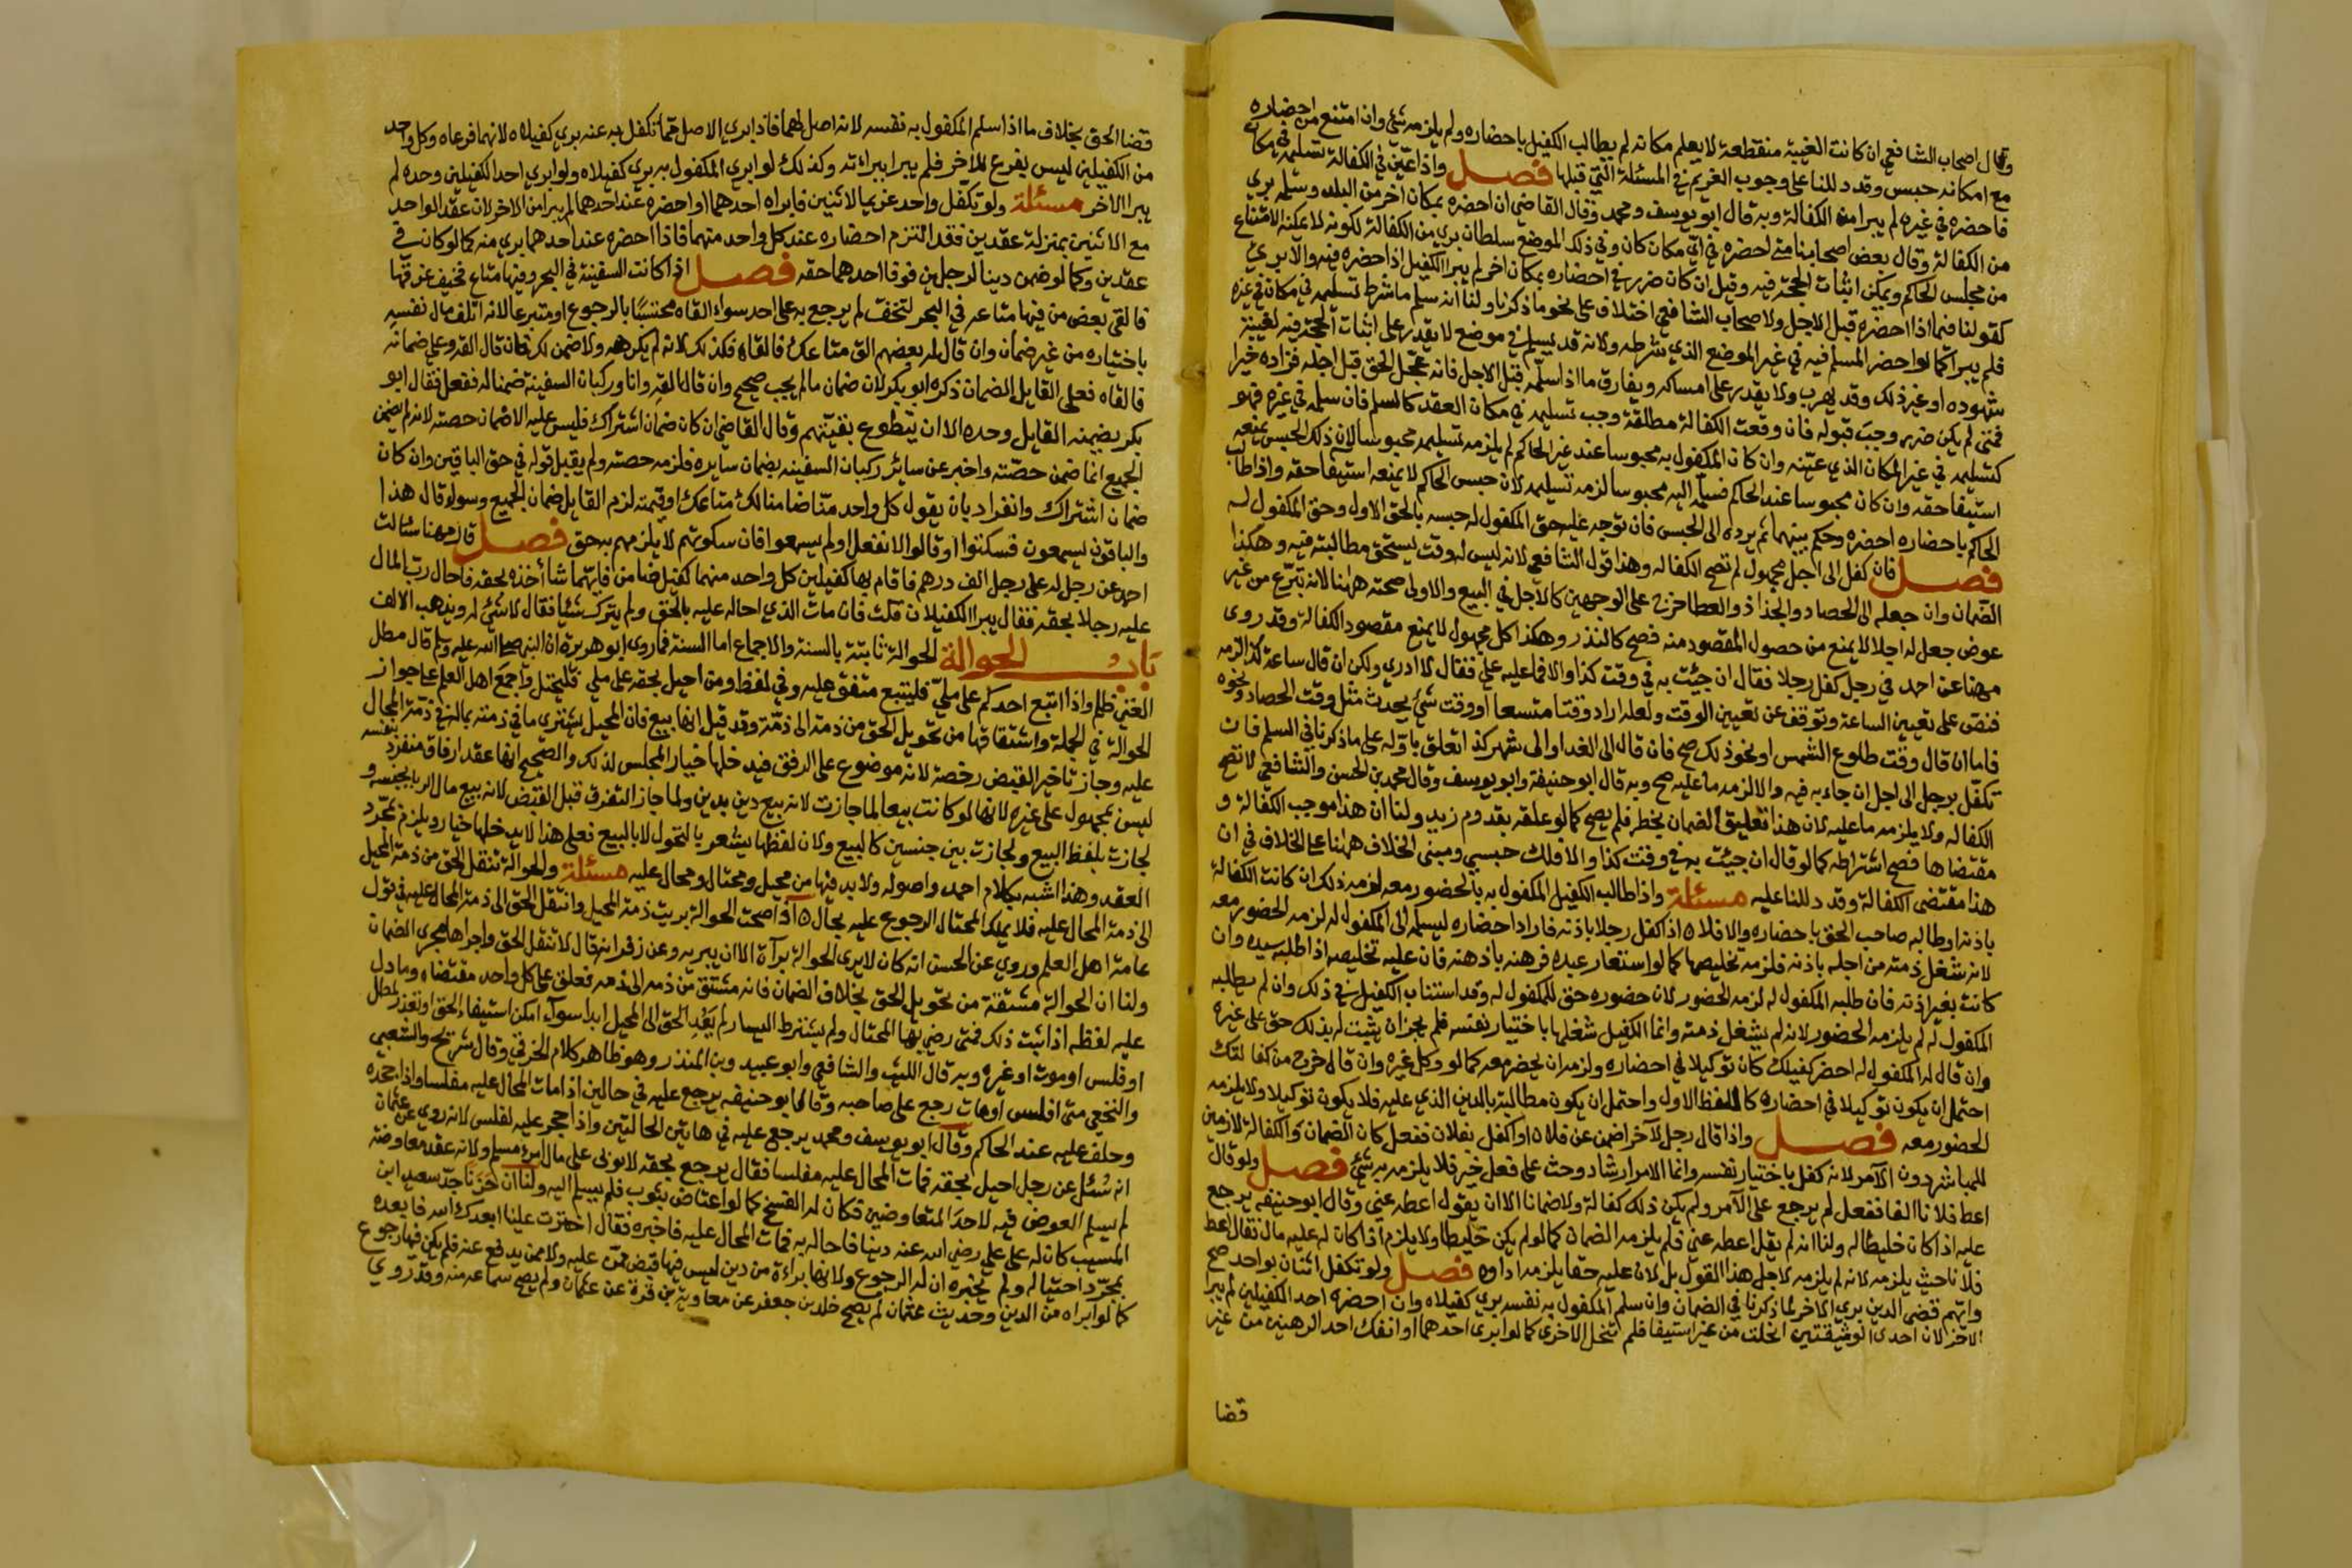 وقال اصحاب الشافعي ان كانت الغيبة منقطعة لا يعلم مكانه لم يطالب الكفيل باحضاره ولم يلزمه شئ وان امتنع من احضاره
مع امكانه حبس وقد دللنا على وجوب الغرم في المسئلة التي قبلها فصل واذا عين في الكفالة تسليمه في مكان
فاحضره في غيره لم يبرا من الكفالة وبه قال ابو يوسف ومحمد وقال القاضي ان احضره بمكان اخر من البلد وسلمه بري
من الكفالة وقال بعض اصحابنا متى احضره في اي مكان كان وفي ذلك الموضع سلطان بري من الكفالة لكونه لا يمكنه الامتناع
من مجلس الحاكم ويمكن اثبات الحجة فيه وقيل ان كان ضرر في احضاره بمكان اخر لم يبرا الكفيل اذا احضره فيه والا بري
كقولنا فيما اذا احضره قبل الاجل ولاصحاب الشافعي اختلاف على نحو ما ذكرنا ولنا انه سلم ما شرط تسليمه في مكان في غيره
فلم يبرا كما لو احضر المسلم فيه في غير الموضع الذي شرطه ولانه قد يسلم في موضع لا يقدر على اثبات الحجة فيه لغيبة
شهوده او غير ذلك وقد يهرب ولا يقدر على امساكه ويفارق ما اذا سلمه قبل الاجل فانه عجل الحق قبل اجله فزاده خيرا
فمتى لم يكن ضرر وجب قبوله فان وقعت الكفالة مطلقة وجب تسليمه في مكان العقد كالسلم فان سلمه في غيره فهو
كتسليمه في غير المكان الذي عينه وان كان المكفول به محبوسا عند غير الحاكم لم يلزمه تسليمه محبوسا لان ذلك الحبس يمنعه
استيفا حقه وان كان محبوسا عند الحاكم فسلمه اليه محبوسا لزمه تسليمه لان حبس الحاكم لا يمنعه استيفا حقه واذا طالب
الحاكم باحضاره احضره وحكم بينهما ثم يرده الى الحبس فان توجه عليه حق المكفول له حبسه بالحق الاول وحق المكفول له
فصل فان كفل الى اجل مجهول لم تصح الكفاله وهذا قول الشافعي لانه ليس له وقت يستحق مطالبته فيه وهكذا
الضمان وان جعله الى الحصاد والجذاذ والعطا خرج على الوجهين كالاجل في البيع والاولى صحته ههنا لانه تبرع من غير
عوض جعل له اجلا لا يمنع من حصول المقصود منه فصح كالنذر وهكذا كل مجهول لا يمنع مقصود الكفالة وقد روى
مهنا عن احمد في رجل كفل رجلا فقال ان جيئت به في وقت كذا والا فما عليه علي فقال لا ادري ولكن ان قال ساعة كذا لزمه
فنص على تعيين الساعة وتوقف عن تعيين الوقت ولعله اراد وقتا متسعا او وقت شئ يحدث مثل وقت الحصاد ونحوه
فاما ان قال وقت طلوع الشمس او نحو ذلك صح فان قال الى الغد او الى شهر كذا تعلق باوله على ما ذكرنا في السلم فان
تكفل برجل الى اجل ان جاء به فيه والا لزمه ما عليه صح وبه قال ابو حنيفة وابو يوسف وقال محمد بن الحسن والشافعي لا تصح
الكفاله ولا يلزمه ما عليه لان هذا تعليق الضمان بخطر فلم يصح كما لو علقه بقدوم زيد ولنا ان هذا موجب الكفالة و
مقتضاها فصح اشتراطه كما لو قال ان جيئت به في وقت كذا والا فلك حبسي ومبنى الخلاف ههنا على الخلاف في ان
هذا مقتضى الكفالة وقد دللنا عليه مسئلة واذا طالب الكفيل المكفول به بالحضور معه لزمه ذلك ان كانت الكفالة
باذنه او طالبه صاحب الحق باحضاره والا فلا اذا كفل رجلا باذنه فاراد احضاره ليسلمه الى المكفول له لزمه الحضور معه
لانه شغل ذمته من اجله باذنه فلزمه تخليصها كما لو استعار عبده فرهنه باذنه فان عليه تخليصه اذا طلبه سيده وان
كانت بغير اذنه فان طلبه المكفول له لزمه الحضور لان حضوره حق للمكفول له وقد استناب الكفيل في ذلك وان لم يطلبه
المكفول له لم يلزمه الحضور لانه لم يشغل ذمته وانما الكفيل شغلها باختيار نفسه فلم يجز ان يثبت له بذلك حق على غيره
وان قال له المكفول له احضر كفيلك كان توكيلا في احضاره ولزمه ان يحضر معه كما لو وكل غيره وان قال اخرج من كفالتك
احتمل ان يكون توكيلا في احضاره كاللفظ الاول واحتمل ان يكون مطالبة بالدين الذي عليه فلا يكون توكيلا ولا يلزمه
الحضور معه فصل واذا قال رجل لآخر اضمن عن فلان او اكفل بفلان ففعل كان الضمان والكفالة لازمين
للمباشر دون الآمر لانه كفل باختيار نفسه وانما الامر ارشاد وحث على فعل خير فلا يلزمه به شئ فصل ولو قال
اعط فلانا الفا ففعل لم يرجع على الآمر ولم يكن ذلك كفالة ولا ضمانا الا ان يقول اعطه عني وقال ابو حنيفه يرجع
عليه اذا كان خليطا له ولنا انه لم يقل اعطه عني فلم يلزمه الضمان كما لو لم يكن خليطا ولا يلزم اذا كان له عليه مال فقال اعط
فلانا حيث يلزمه لانه لم يلزمه لاجل هذا القول بل لان عليه حقا يلزمه اداوه فصل ولو تكفل اثنان بواحد صح
وايهم قضى الدين بري الاخر لما ذكرنا في الضمان وان سلم المكفول به نفسه بري كفيلاه وان احضره احد الكفيلين لم يبرا
الاخر لان احدى الوثيقتين انحلت من غير استيفا فلم تنحل الاخرى كما لو ابرى احدهما او انفك احد الرهنين من غير
قضا
قضا الحق بخلاف ما اذا سلم المكفول به نفسه لانه اصل لهما فاذا بري الاصل مما تكفل به عنه بري كفيلاه لانهما فرعاه وكل واحد
من الكفيلين ليس بفرع للاخر فلم يبرا ببراءته وكذلك لو ابرى المكفول به بري كفيلاه ولو ابري احد الكفيلين وحده لم
يبرا الاخر مسئلة ولو تكفل واحد غريما لاثنين فابراه احدهما او احضره عند احدهما لم يبرا من الاخر لان عقد الواحد
مع الاثنين بمنزلة عقدين فقد التزم احضاره عند كل واحد منهما فاذا احضره عند احدهما بري منه كما لو كان في
عقدين وكما لو ضمن دينا لرجلين فوفا احدهما حقه فصل اذا كانت السفينة في البحر وفيها متاع فخيف غرقها
فالقى بعض من فيها متاعه في البحر لتخف لم يرجع به على احد سواء القاه محتسبا بالرجوع او متبرعا لانه اتلف مال نفسه
باختياره من غير ضمان وان قال له بعضهم الق متاعك فالقاه فكذلك لانه لم يكرهه ولا ضمن له وان قال القه وعلي ضمانه
فالقاه فعلى القايل الضمان ذكره ابو بكر لان ضمان ما لم يجب صحيح وان قال القه وانا وركبان السفينة ضمنا له ففعل فقال ابو
بكر يضمنه القايل وحده الا ان يتطوع بقيتهم وقال القاضي ان كان ضمان اشتراك فليس عليه الا ضمان حصته لانه لم يضمن
الجميع انما ضمن حصته واخبر عن سائر ركبان السفينه بضمان سايره فلزمه حصته ولم يقبل قوله في حق الباقين وان كان
ضمان اشتراك وانفراد بان يقول كل واحد منا ضامن لك متاعك او قيمته لزم القايل ضمان الجميع وسواء قال هذا
والباقون يسمعون فسكتوا او قالوا لا نفعل او لم يسمعوا فان سكوتهم لا يلزمهم به حق فصل قال مهنا سئالت
احمد عن رجل له على رجل الف درهم فاقام بها كفيلين كل واحد منهما كفيل ضامن فايهما شا أخذه بحقه فاحال رب المال
عليه رجلا بحقه فقال يبرا الكفيلان قلت فان مات الذي احاله عليه بالحق ولم يترك شيئا فقال لا شئ له ويذهب الالف
باب الحوالة الحوالة ثابتة بالسنة والاجماع اما السنة فما روى ابو هريرة ان النبي صلى الله عليه وسلم قال مطل
الغني ظلم واذا اتبع احدكم على ملي فليتبع متفق عليه وفي لفظ ومن احيل بحقه على ملي فليحتل واجمع اهل العلم على جواز
الحوالة في الجملة واشتقاقها من تحويل الحق من ذمة الى ذمة وقد قيل انها بيع فان المحيل يشتري ما في ذمته بماله في ذمة المحال
عليه وجاز تاخير القبض رخصة لانه موضوع على الرفق فيدخلها خيار المجلس لذلك والصحيح انها عقد ارفاق منفرد بنفسه
ليس بمحمول على غيره لانها لو كانت بيعا لما جازت لانه بيع دين بدين ولما جاز التفرق قبل القبض لانه بيع مال الربا بجنسه و
لجازت بلفظ البيع ولجازت بين جنسين كالبيع ولان لفظها يشعر بالتحول لا بالبيع فعلى هذا لا يدخلها خيار ويلزم بمجرد
العقد وهذا اشبه بكلام احمد واصوله ولا بد فيها من محيل ومحتال ومحال عليه مسئلة والحوالة تنقل الحق من ذمة المحيل
الى ذمة المحال عليه فلا يملك المحتال الرجوع عليه بحال اذا صحت الحوالة بريت ذمة المحيل وانتقل الحق الى ذمة المحال عليه في قول
عامة اهل العلم وروي عن الحسن انه كان لا يرى الحوالة برآة الا ان يبريه وعن زفر انه قال لا تنقل الحق واجراها مجرى الضمان
ولنا ان الحوالة مشتقة من تحويل الحق بخلاف الضمان فانه مشتق من ذمه الى ذمه فعلق على كل واحد مقتضاه وما دل
عليه لفظه اذا ثبت ذلك فمتى رضي بها المحتال ولم يشترط اليسار لم يعد الحق الى المحيل ابدا سوآء امكن استيفاء الحق او تعذر لمطل
او فلس او موت او غيره وبه قال الليث والشافعي وابو عبيد وبن المنذر وهو ظاهر كلام الخرقي وقال شريح والشعبي
والنخعي متى افلس او مات رجع على صاحبه وقال ابو حنيفه يرجع عليه في حالين اذا مات المحال عليه مفلسا واذا جحده
وحلف عليه عند الحاكم وقال ابو يوسف ومحمد يرجع عليه في هاتين الحالتين واذا حجر عليه لفلس لانه روي عن عثمان
انه سئل عن رجل احيل بحقه فمات المحال عليه مفلسا فقال يرجع بحقه لا توى على مال امرء مسلم ولانه عقد معاوضة
لم يسلم العوض فيه لاحد المتعاوضين فكان له الفسخ كما لو اعتاض بثوب فلم يسلم اليه ولنا ان حزنا جد سعيد ابن
المسيب كان له على علي رضي الله عنه دينا فاحاله به فمات المحال عليه فاخبره فقال اخترت علينا ابعدك الله فابعده
بمجرد احتياله ولم يخبره ان له الرجوع ولانها براءة من دين ليس فيها قبض ممن عليه ولا ممن يدفع عنه فلم يكن فيها رجوع
كما لو ابراه من الدين وحديث عثمان لم يصح خلد بن جعفر عن معاوية بن قرة عن عثمان ولم يصح سماعه منه وقد روي